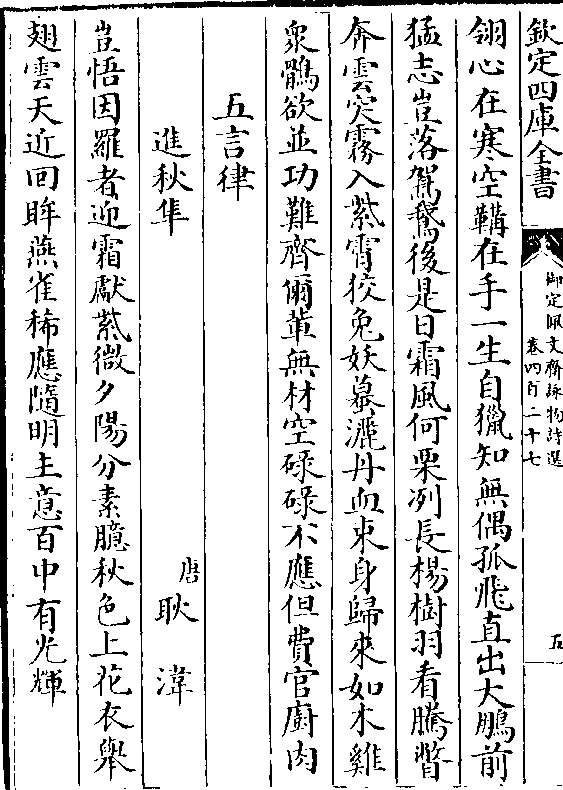 欽定四庫全書
御定佩文齋詠物詩選
卷四百二十七
五
翎心在寒空鞲在手一生自獵知無偶孤飛直出大鵬前
猛志豈落駕鵝後是日霜風何栗冽長楊樹羽看騰瞥
奔雲突霧入紫霄狡兔妖蟇灑丹血束身歸來如木雞
衆鶻欲並功難齊爾輩無材空碌碌不應但費官廚肉
五言律
進秋隼
唐
耿湋
豈悟因羅者迎霜獻紫微夕陽分素臆秋色上花衣舉
翅雲天近回眸燕雀稀應隨明主意百中有光輝